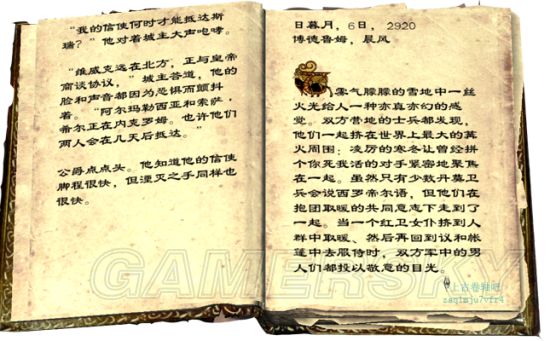 “我的信使何时才能抵达斯
瑞？”他对着城主大声咆哮。
“维威克远在北方，正与皇帝
商谈协议，”城主答道，他的
脸和声音都因为恐惧而颤抖
着。“阿尔玛勒西亚和索萨·
希尔正在内克罗姆。也许他们
两人会在几天后抵达。”
公爵点点头。他知道他的信使
脚程很快，但湮灭之手同样也
很快。
日暮月，6日，2920
博德鲁姆，晨风
雾气朦朦的雪地中一丝
火光给人一种亦真亦幻的感
觉。双方营地的士兵都发现，
他们一起挤在世界上最大的篝
火周围：凌厉的寒冬让曾经拼
个你死我活的对手紧密地聚焦
在一起。虽然只有少数丹莫卫
兵会说西罗帝尔语，但他们在
抱团取暖的共同意志下走到了
一起。当一个红卫女仆挤到人
群中取暖、然后再回到议和帐
篷中去服侍时，双方军中的男
人们都投以敬意的目光。
GAMERSKY
上古卷轴吧
zaq1mju7vfr4